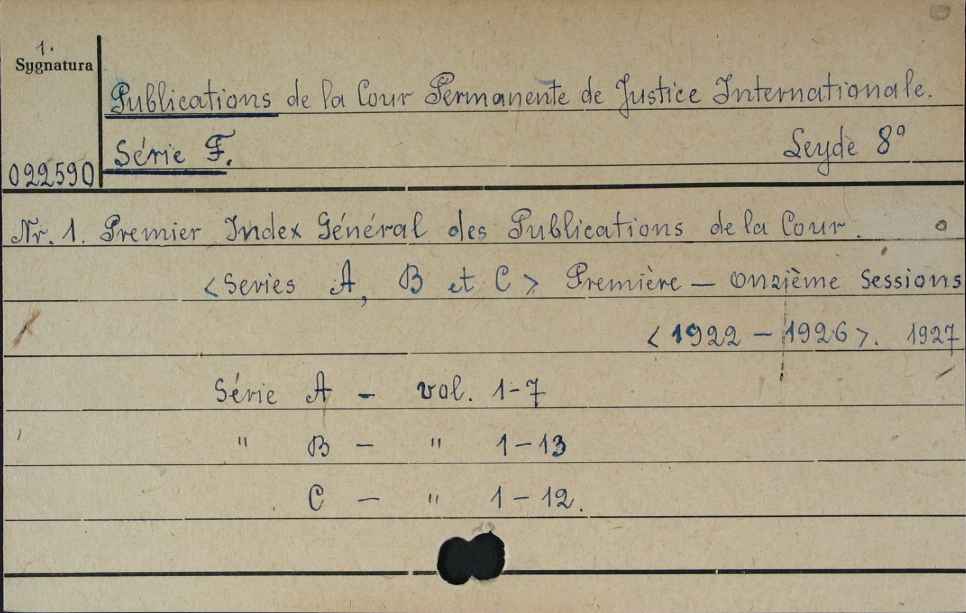 1.
Sygnatura
Publications de la Cour Permanente de Justice Internationale.
Série F. Leyde 8°
022590
Nr. 1. Premier Index Général des Publications de la Cour.
<Series A, B et C> Première — Onzième Sessions
<1922 — 1926>. 1927
Série A - vol. 1-7
" B — " 1-13
C — " 1-12.